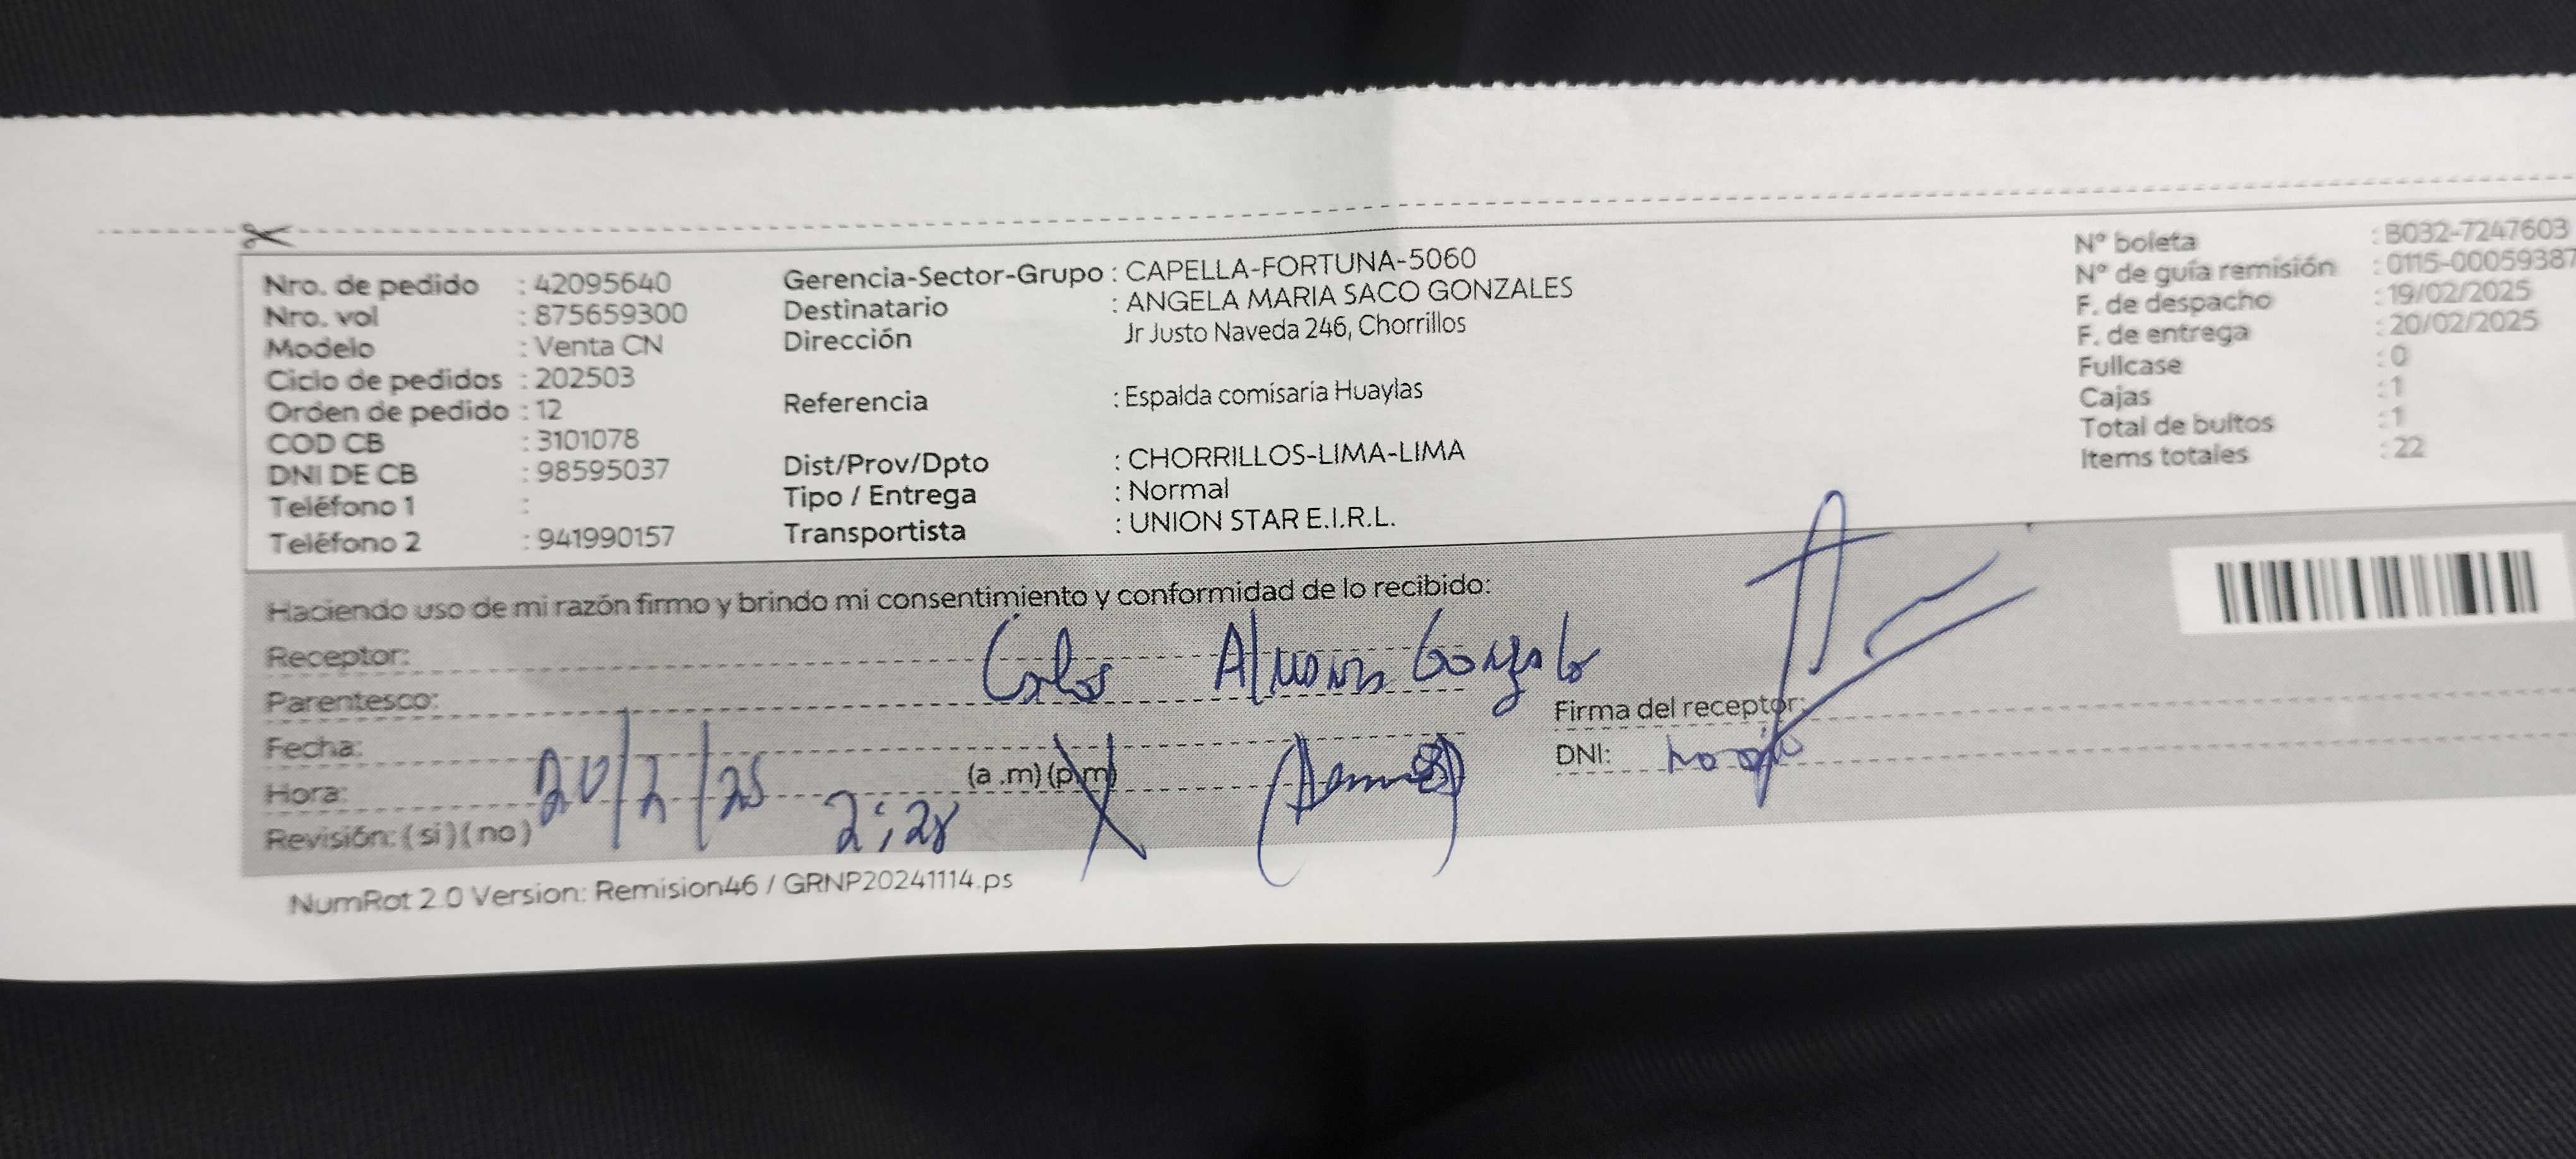 Nro. de pedido : 42095640
Nro. vol : 875659300
Modelo : Venta CN
Ciclo de pedidos : 202503
Orden de pedido : 12
COD CB : 3101078
DNI DE CB : 98595037
Teléfono 1 :
Teléfono 2 : 941990157
Gerencia-Sector-Grupo : CAPELLA-FORTUNA-5060
Destinatario : ANGELA MARIA SACO GONZALES
Dirección Jr Justo Naveda 246, Chorrillos
Referencia : Espalda comisaria Huaylas
Dist/Prov/Dpto : CHORRILLOS-LIMA-LIMA
Tipo / Entrega : Normal
Transportista : UNION STAR E.I.R.L.
N° boleta : B032-7247603
N° de guía remisión : 0115-00059387
F. de despacho : 19/02/2025
F. de entrega : 20/02/2025
Fullcase : 0
Cajas : 1
Total de bultos : 1
Items totales : 22
Haciendo uso de mi razón firmo y brindo mi consentimiento y conformidad de lo recibido:
Receptor: Carlos
Parentesco:
Fecha: 20/2/25
Hora: 2:28 (a .m) (p.m)
Revisión: (si) (no)
Firma del receptor:
DNI:
NumRot 2.0 Version: Remision46 / GRNP20241114.ps